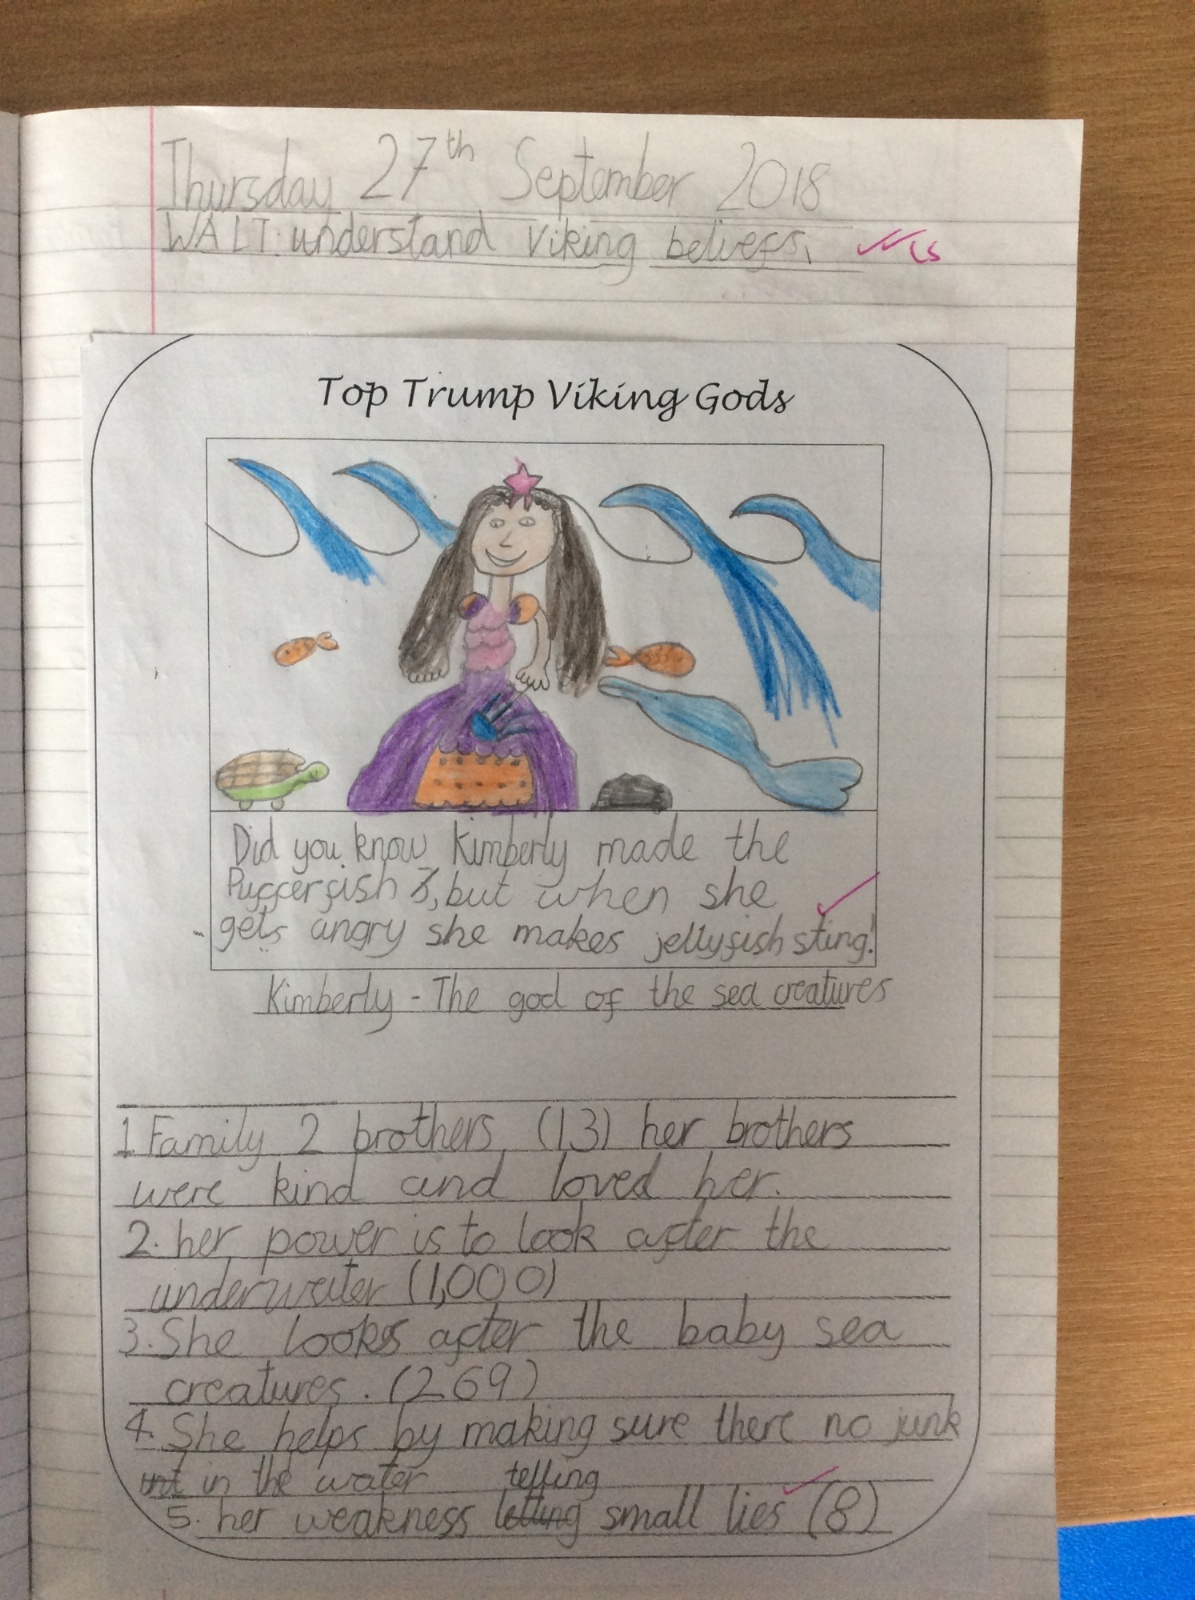 Thursday 27th September 2018
WALT: understand Viking beliefs.
Top Trump Viking Gods
Did you know Kimberly made the
Pufferfish, but when she
gets angry she makes jellyfish sting!
Kimberly - The god of the sea creatures
1. Family 2 brothers (13) her brothers
were kind and loved her.
2. her power is to look after the
underwater (1,000)
3. She looks after the baby sea
creatures. (269)
4. She helps by making sure there no junk
in the water
telling
5. her weakness letting small lies (8)